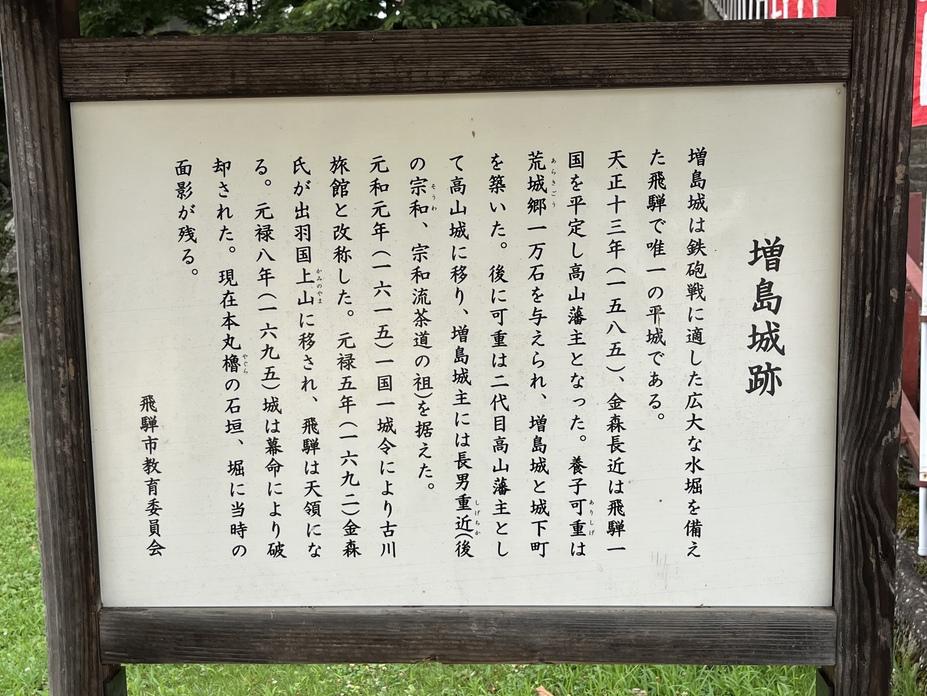 増島城跡
増島城は鉄砲戦に適した広大な水堀を備え
た飛騨で唯一の平城である。
天正十三年(一五八五)、金森長近は飛騨一
国を平定し高山藩主となった。養子可重は
ありしげ
荒城郷一万石を与えられ、増島城と城下町
あらきごう
を築いた。後に可重は二代目高山藩主とし
て高山城に移り、増島城主には長男重近(後
しげちか
の宗和、宗和流茶道の祖)を据えた。
そうわ
元和元年(一六一五)一国一城令により古川
旅館と改称した。元禄五年(一六九二)金森
氏が出羽国上山に移され、飛騨は天領にな
かみのやま
る。元禄八年(一六九五)城は幕命により破
却された。現在本丸櫓の石垣、堀に当時の
やぐら
面影が残る。
飛騨市教育委員会